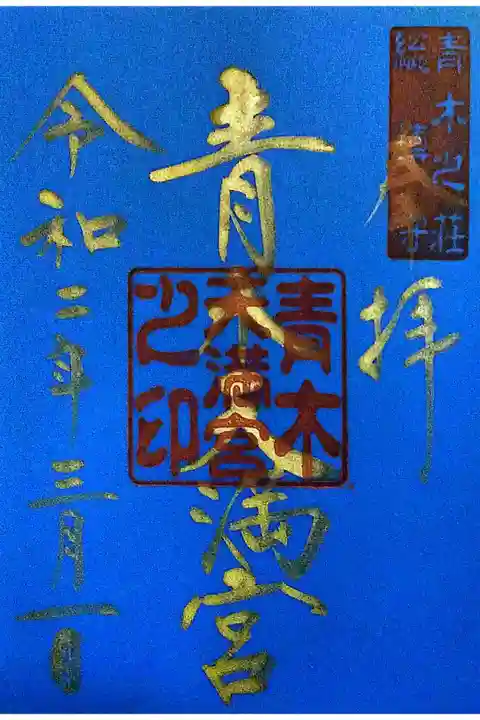 青木之荘
奉拝
青木天満宮
青木
天満宮
之印
令和二年三月一日